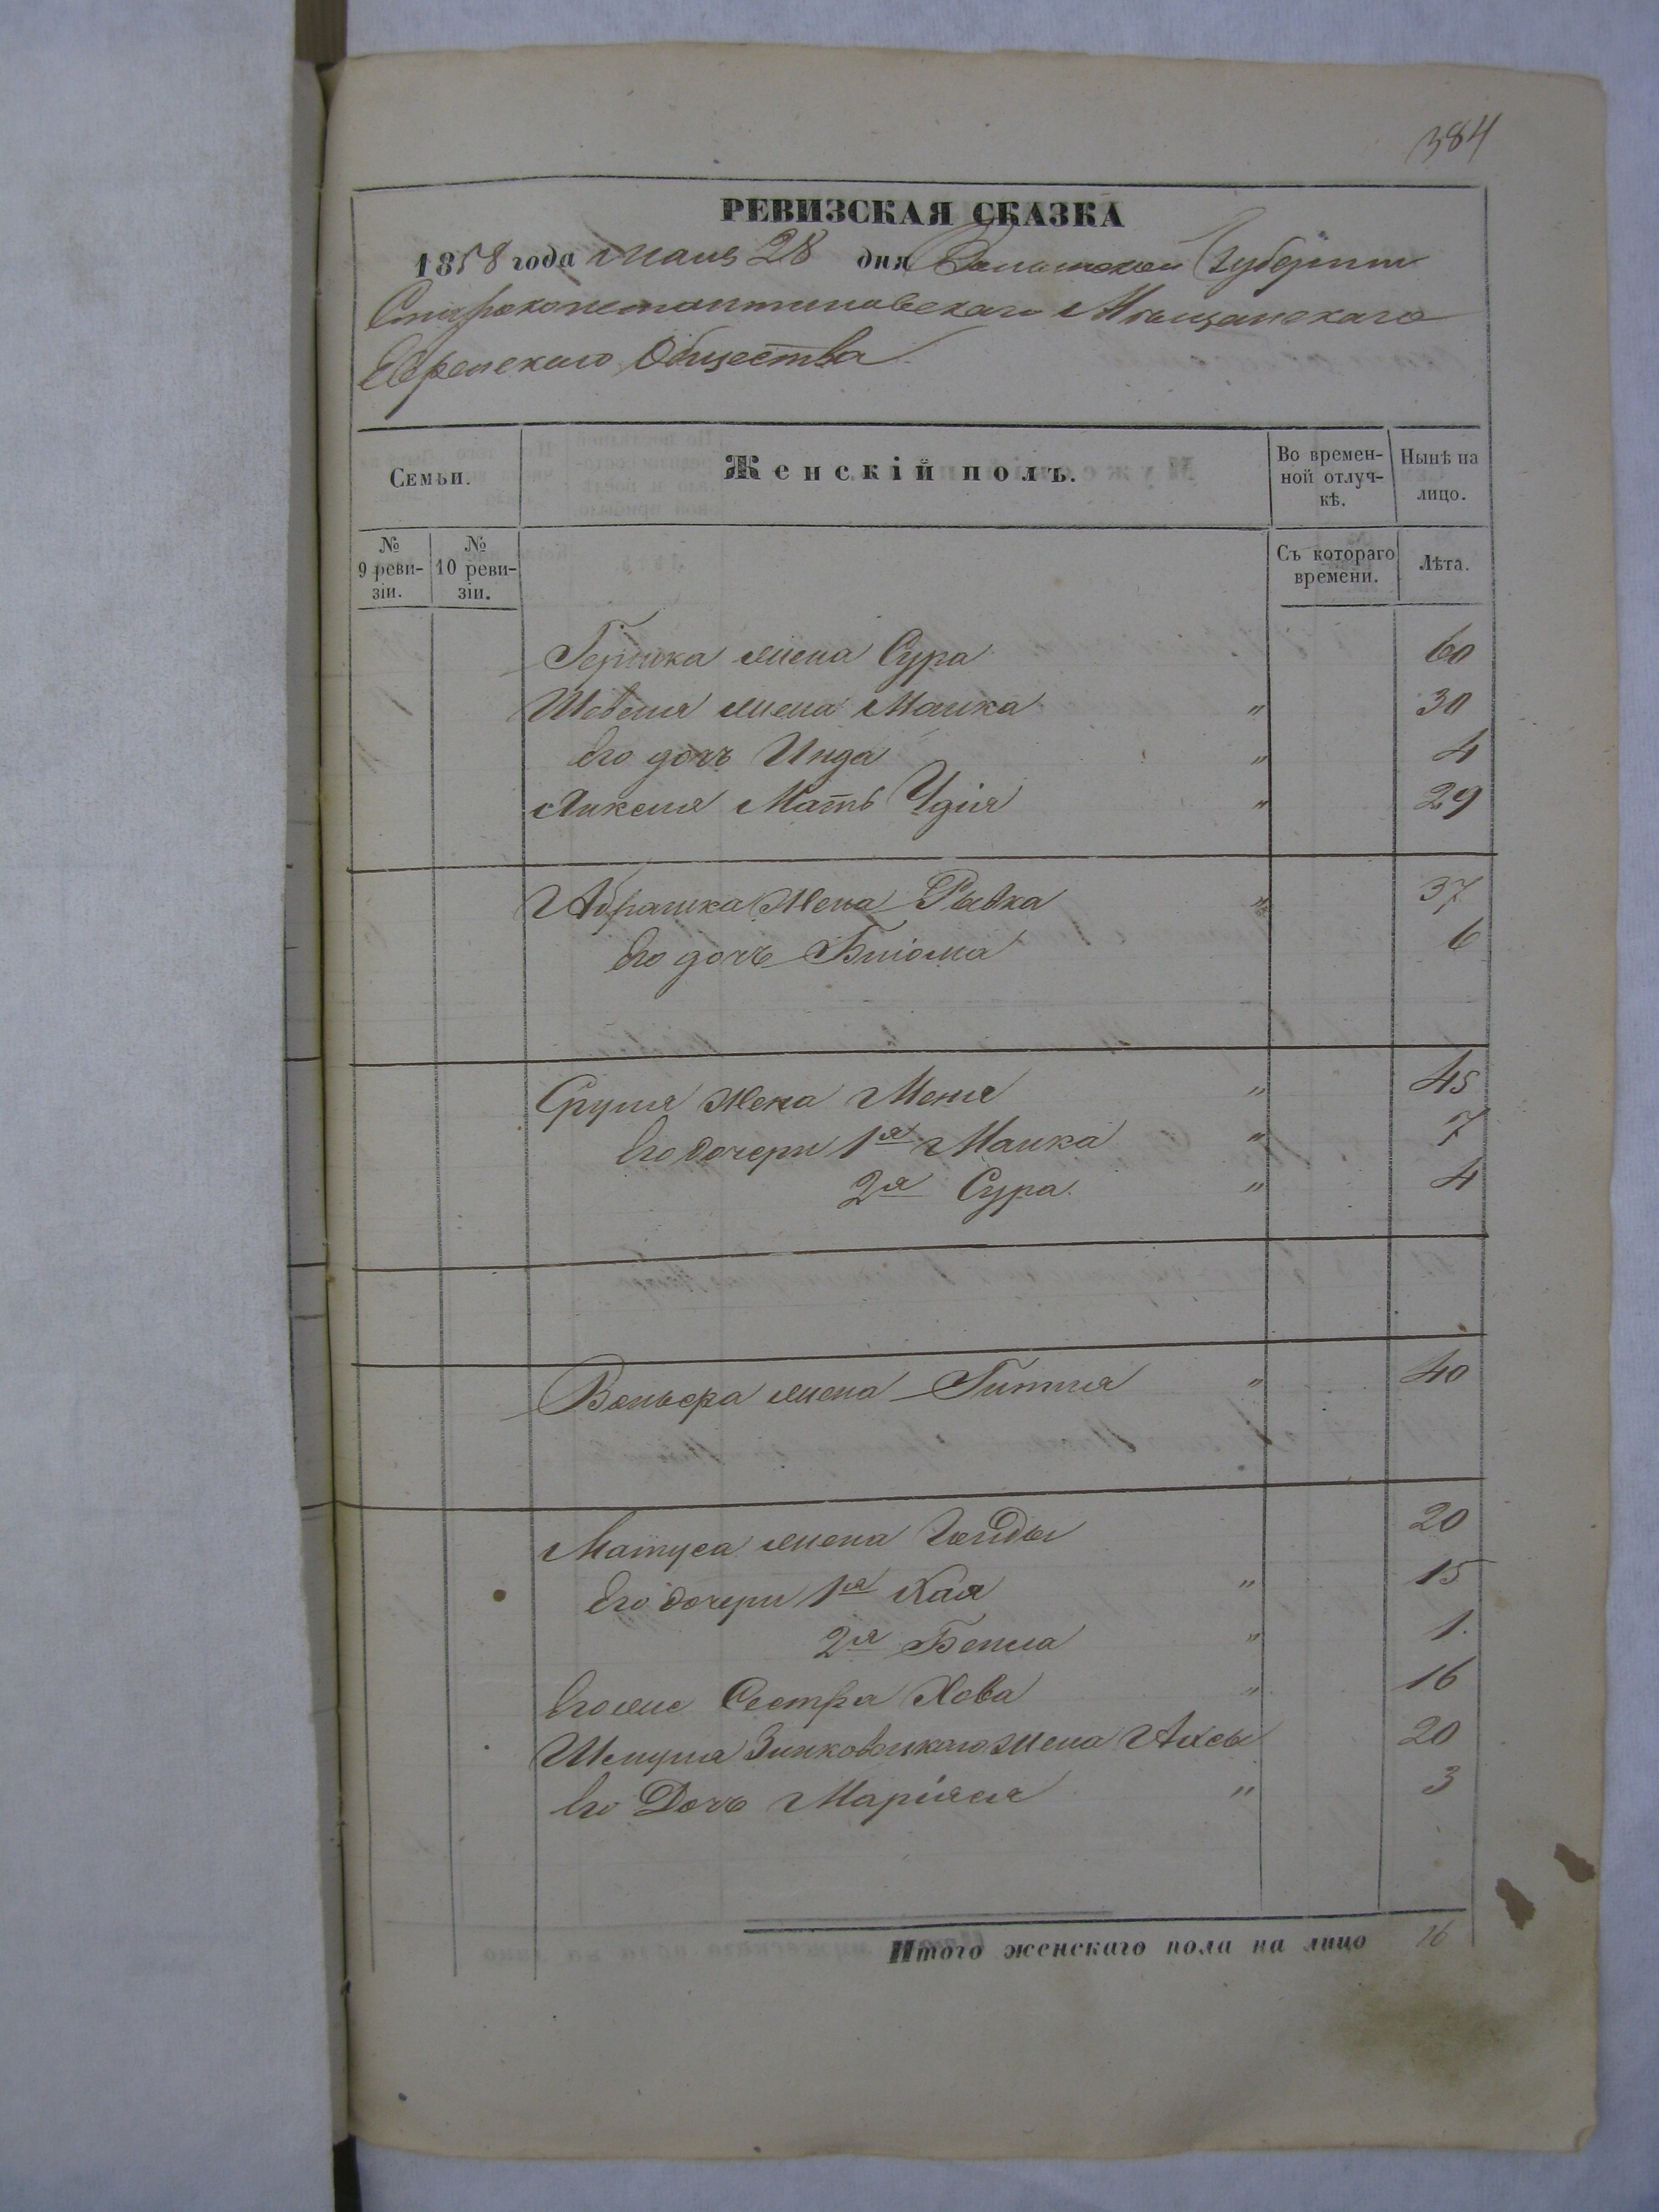 384
РЕВИЗСКАЯ СКАЗКА
1858 года Маія 28 дня Волынской Губерніи
Староконстантиновскаго Мѣщанскаго
Еврейскаго Общества
Семьи.
Женскій полъ.
Во времен-
ной отлуч-
кѣ.
Нынѣ на
лицо.
№
9 реви-
зіи.
№
10 реви-
зіи.
Съ котораго
времени.
Лѣта.
Гершка жена Сура 60
жена Малка " 30
Его дочь Инда " 4
Мать " 29
Абрашка жена Рывка " 37
Его дочь 6
Сруля жена Меня " 45
Его дочери 1я Малка " 7
2я Сура " 4
жена Гитля " 40
Матуса жена 20
Его дочери 1я Хая " 15
2я Бейла " 1.
Его же Сестра Хова " 16
Шмуля Зинковецкаго жена 20
Его Дочь Маріяся " 3
Итого женскаго пола на лицо 16